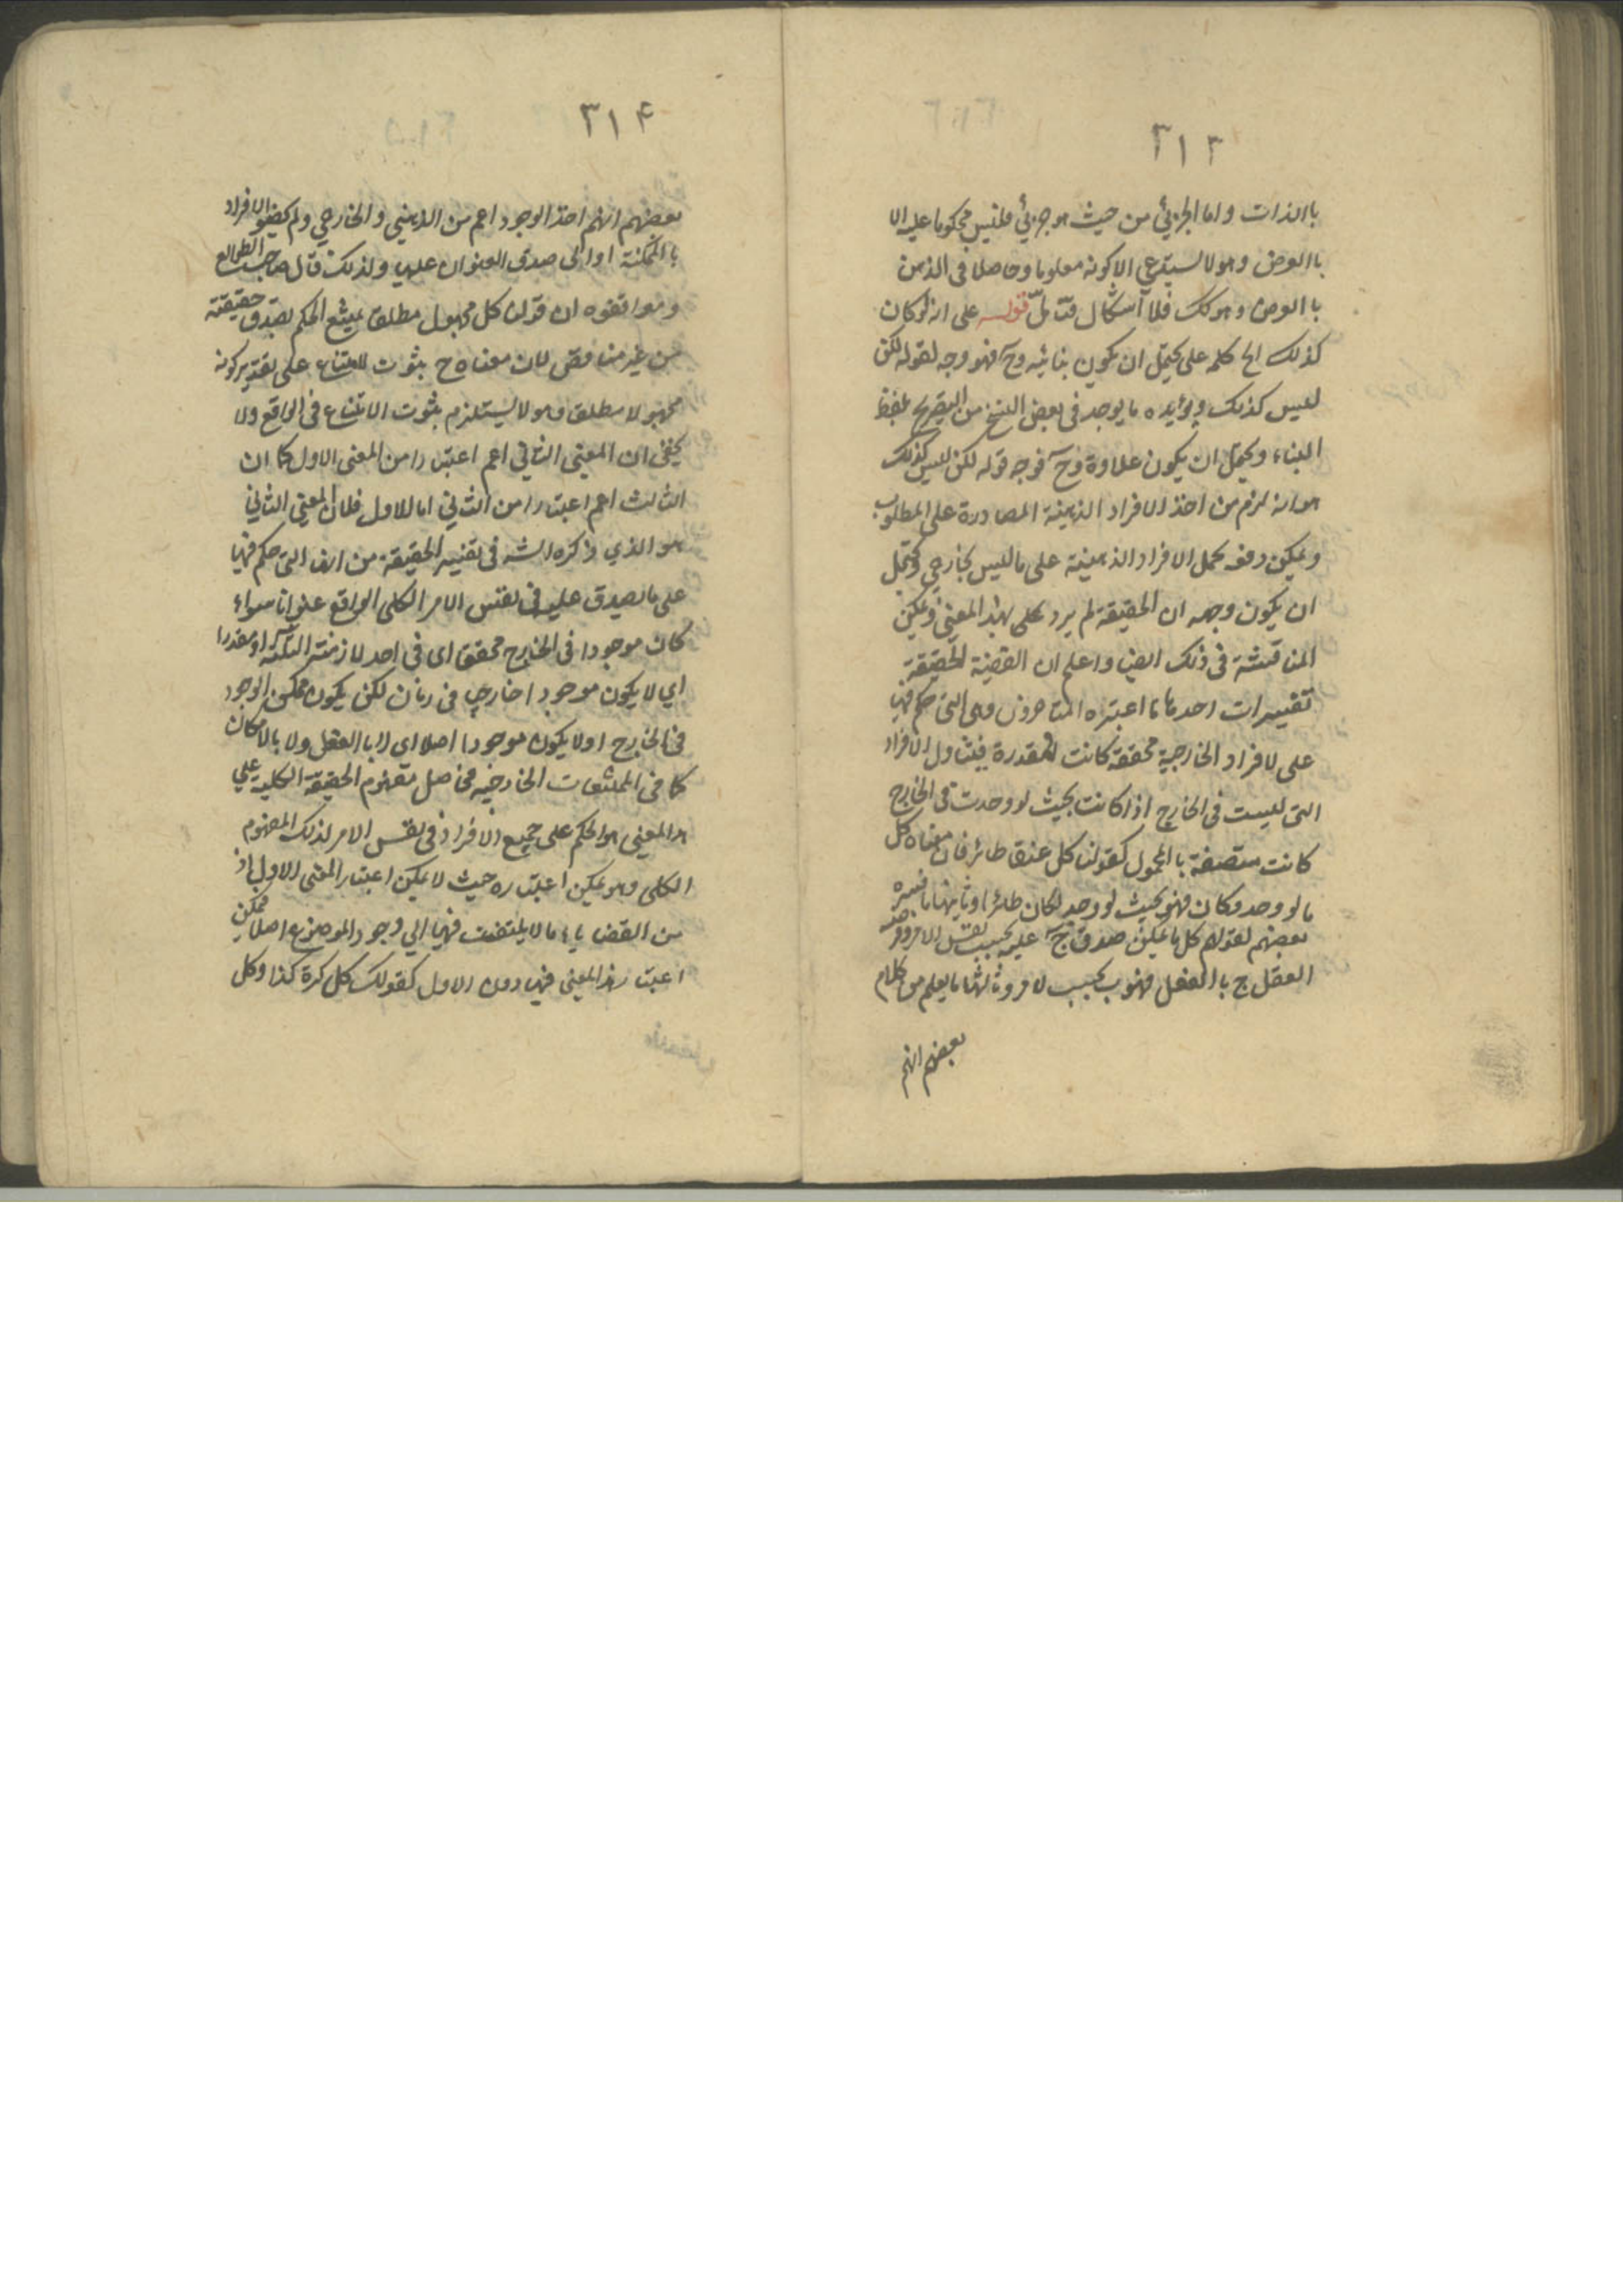 ٣١٣
باالذات واما الجزئي من حيث هو جزئي فليس محكوما عليه الا
باالعرض وهو لا يستدعي الا كونه معلوما وحاصلا في الذهن
باالعرض وهو كك فلا اشكال فتامل قوله على انه لو كان
كذلك الخ كلمه على يحتمل ان يكون بنائيه وح فهو وجه لقوله لكن
ليس كذلك ويؤيده ما يوجد في بعض النسخ من التصريح بلفظ
البناء ويحتمل ان يكون علاوة وح فوجه قوله لكن ليس كذلك
هو انه لزم من اخذ الافراد الذهنية المصادرة على المطلوب
ويمكن دفعه بحمل الافراد الذهنية على ما ليس بخارجي ويحتمل
ان يكون وجهه ان الحقيقة لم يرد على بهذا المعنى ويمكن
المناقشة في ذلك ايضا واعلم ان القضية الحقيقة
تفسيرات احدها ما اعتبره المتاخرون وهي التي حكم فيها
على لافراد الخارجية محققة كانت او مقدرة فيتناول الافراد
التي ليست في الخارج اذا كانت بحيث لو وجدت في الخارج
كانت متصفة باالمحمول كقولنا كل عنقا طائر فان معناه كل
ما لو وجد وكان فهو بحيث لو وجد لكان طائرا وثانيها ما فسره
بعضهم لقولهم كل ما يمكن صدق ج عليه بحسب نفس الامر
العقل ج باالفعل فهو ب بحسب لامر وثالثها ما يعلم من كلام
بعضهم انهم
٣١۴
بعضهم انهم اخذ الوجود اعم من الذهني والخارجي ولم الافراد
باالممكنة او الى صدق العنوان عليها ولذلك قال صاحب المطالع
وموافقوه ان قولنا كل مجهول مطلق يمتنع الحكم بصدق حقيقته
من غير مناقض لان معناه ح بثوت الامتناع على تقدير كونه
مجهولا مطلق وهو لا يستلزم بثوت الامتناع في الواقع ولا
يخفى ان المعنى الثاني اعم اعتبارا من المعنى الاول كما ان
الثالث اعم اعتبارا من الثاني اما للاول فلان المعنى الثاني
هو الذي ذكره الشه في تفسير الحقيقة من انها التي حكم فيها
على ما يصدق عليه في نفس الامر الكلى الواقع عنوانا سواء
كان موجودا في الخارج محقق اى في احد لازمنة الثلثة او مقدرا
اي لا يكون موجودا خارجي في زمان لكن يكون ممكن الوجود
في الخارج اولا يكون موجودا اصلا اى لا باالعقل ولا بالامكان
كما في الممتنعات الخارجيه فحاصل مفهوم الحقيقة الكلية على
هذا المعنى هو الحكم على جميع الافراد في نفس الامر لذلك المفهوم
الكلى وهو يمكن اعتباره حيث لا يمكن اعتبار المعنى الاول اذ
من القضايا ما لا يلتفت فيها الى وجود الموضوع اصلا فيمكن
اعتبار هذا المعنى فيها دون الاول كقولك كل كرة كذا وكل